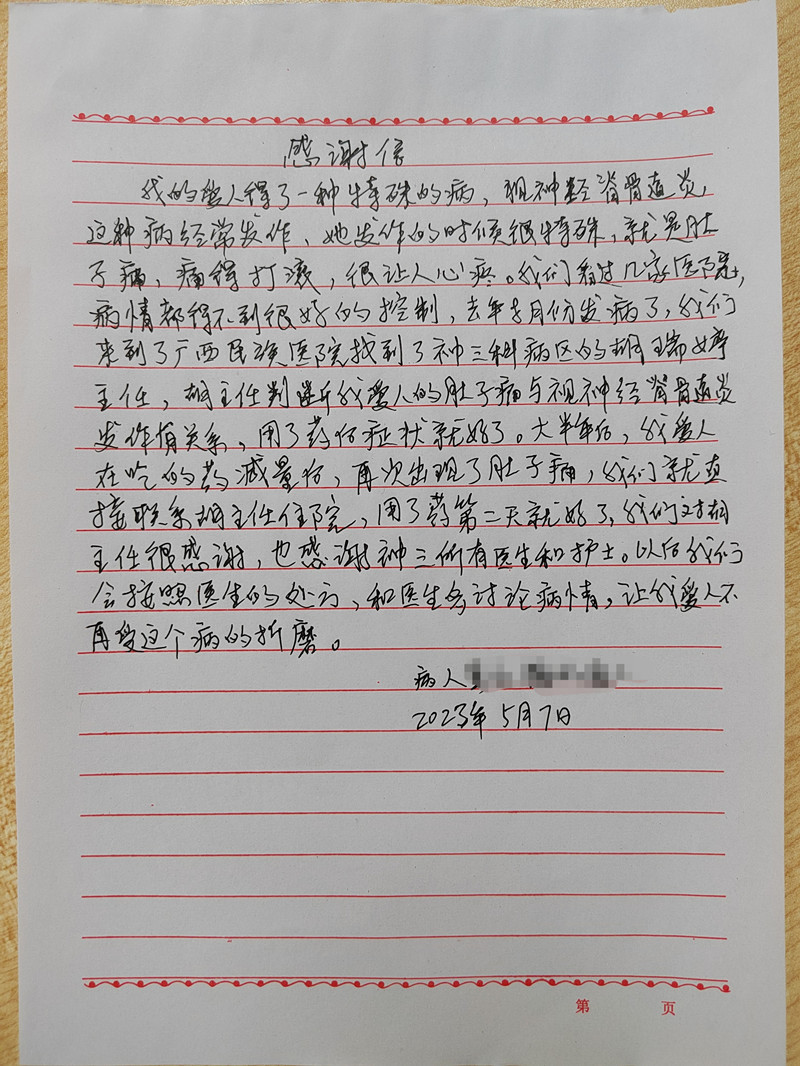 感谢信
我的爱人得了一种特殊的病，视神经脊髓炎，
这种病经常发作，她发作的时候很特殊，就是肚
子痛，痛得打滚，很让人心疼。我们看过几家医院，
病情都得不到很好的控制，去年5月份发病了，我们
来到了广西民族医院找到了神三科病区的胡瑞婷
主任，胡主任判断我爱人的肚子痛与视神经脊髓炎
发作有关系，用了药后症状就好了。大半年后，我爱人
在吃的药减量后，再次出现了肚子痛，我们就直
接联系胡主任住院，用了药第二天就好了，我们对胡
主任很感谢，也感谢神三所有医生和护士。以后我们
会按照医生的处方，和医生多讨论病情，让我爱人不
再受这个病的折磨。
病人
2023年5月7日
第 页